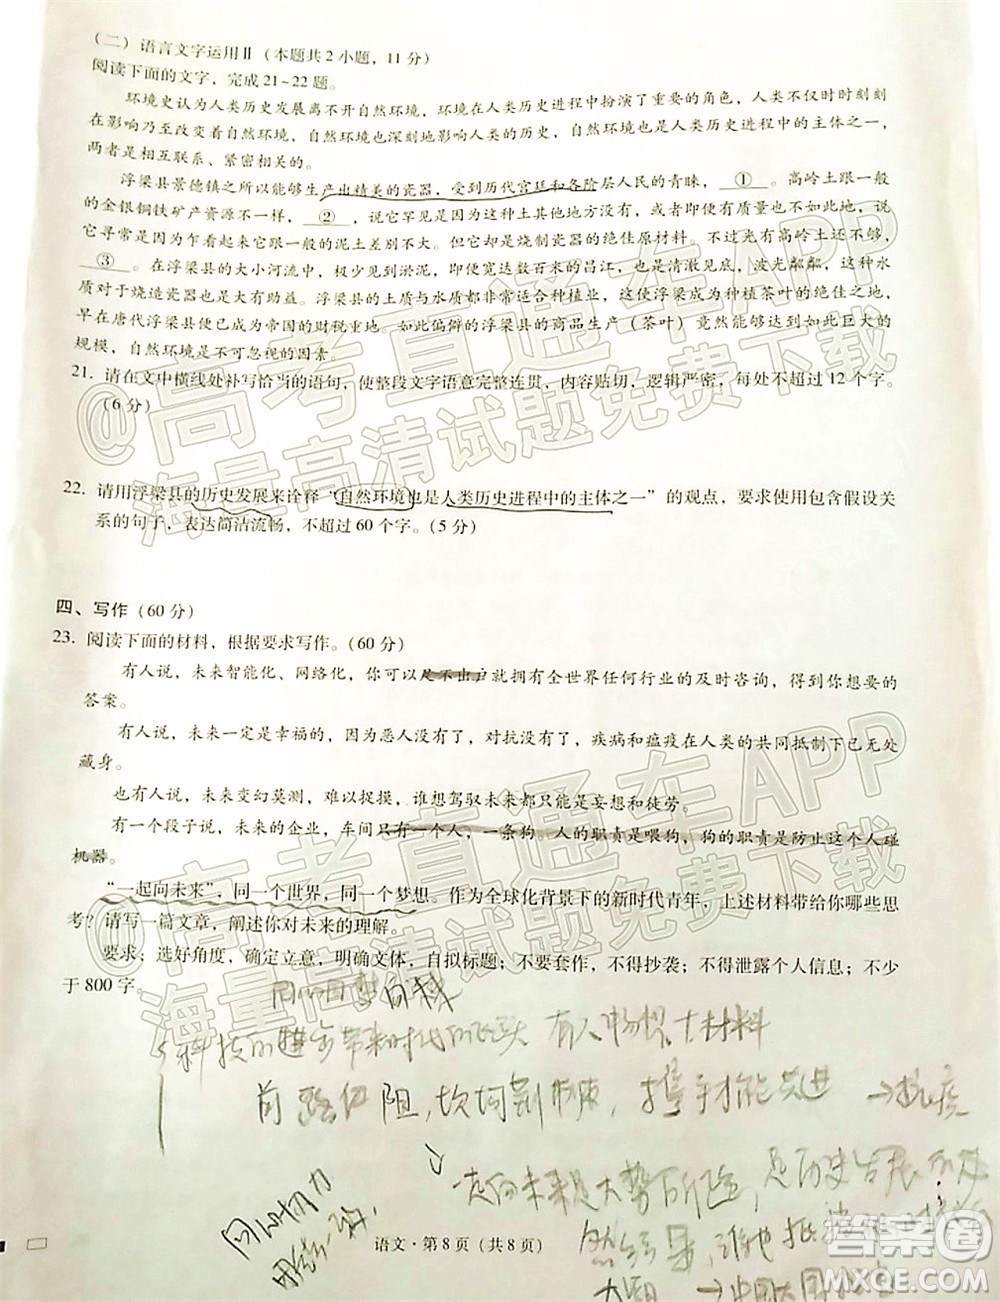 （二）语言文字运用Ⅱ（本题共2小题，11分）
阅读下面的文字，完成21~22题。
环境史认为人类历史发展离不开自然环境，环境在人类历史进程中扮演了重要的角色，人类不仅时时刻刻
在影响乃至改变着自然环境，自然环境也深刻地影响人类的历史，自然环境也是人类历史进程中的主体之一，
两者是相互联系、紧密相关的。
浮梁县景德镇之所以能够生产出精美的瓷器，受到历代宫廷和各阶层人民的青睐， ① 。高岭土跟一般
的金银铜铁矿产资源不一样， ② ，说它罕见是因为这种土其他地方没有，或者即便有质量也不如本地，说
它寻常是因为乍看起来它跟一般的泥土差别不大。但它却是烧制瓷器的绝佳原材料。不过光有高岭土还不够，
③ 。在浮梁县的大小河流中，极少见到淤泥，即便宽达数百米的昌江，也是清澈见底，波光粼粼，这种水
质对于烧造瓷器有大有助益。浮梁县的土质与水质都非常适合种植业，这使得浮梁成为种植茶叶的绝佳之地，
早在唐代浮梁县便已成为帝国的财税重地。如此偏僻的浮梁县的商品生产（茶叶）竟然能够达到如此巨大的
规模，自然环境是不可忽视的因素。
21. 请在文中横线处补写恰当的语句，使整段文字语意完整连贯，内容贴切，逻辑严密，每处不超过12个字。
（6分）
22. 请用浮梁县的历史发展来诠释“自然环境也是人类历史进程中的主体之一”的观点，要求使用包含假设关
系的句子，表达简洁流畅，不超过60个字。（5分）
四、写作（60分）
23. 阅读下面的材料，根据要求写作。（60分）
有人说，未来智能化、网络化，你可以足不出户就拥有全世界任何行业的及时咨询，得到你想要的
答案。
有人说，未来一定是幸福的，因为恶人没有了，对抗没有了，疾病和瘟疫在人类的共同抵制下已无处
藏身。
也有人说，未来变幻莫测，难以捉摸，谁想驾驭未来都只能是妄想和徒劳。
有一个段子说，未来的企业，车间只有一个人，一条狗。人的职责是喂狗，狗的职责是防止这个人碰
机器。
“一起向未来”，同一个世界，同一个梦想。作为全球化背景下的新时代青年，上述材料带给你哪些思
考？请写一篇文章，阐述你对未来的理解。
要求：选好角度，确定立意，明确文体，自拟标题；不要套作，不得抄袭；不得泄露个人信息；不少
于800字。
科技的进步带来时代的飞跃 有人 材料
前路 阻，坎坷 ，携手才能共进 →抗疫
走向未来是大势所趋，是历史发展
同心协力
语文·第8页（共8页）
@高考直通车APP
海量高清试题免费下载
@高考直通车APP
海量高清试题免费下载
答案圈
MXQE.COM